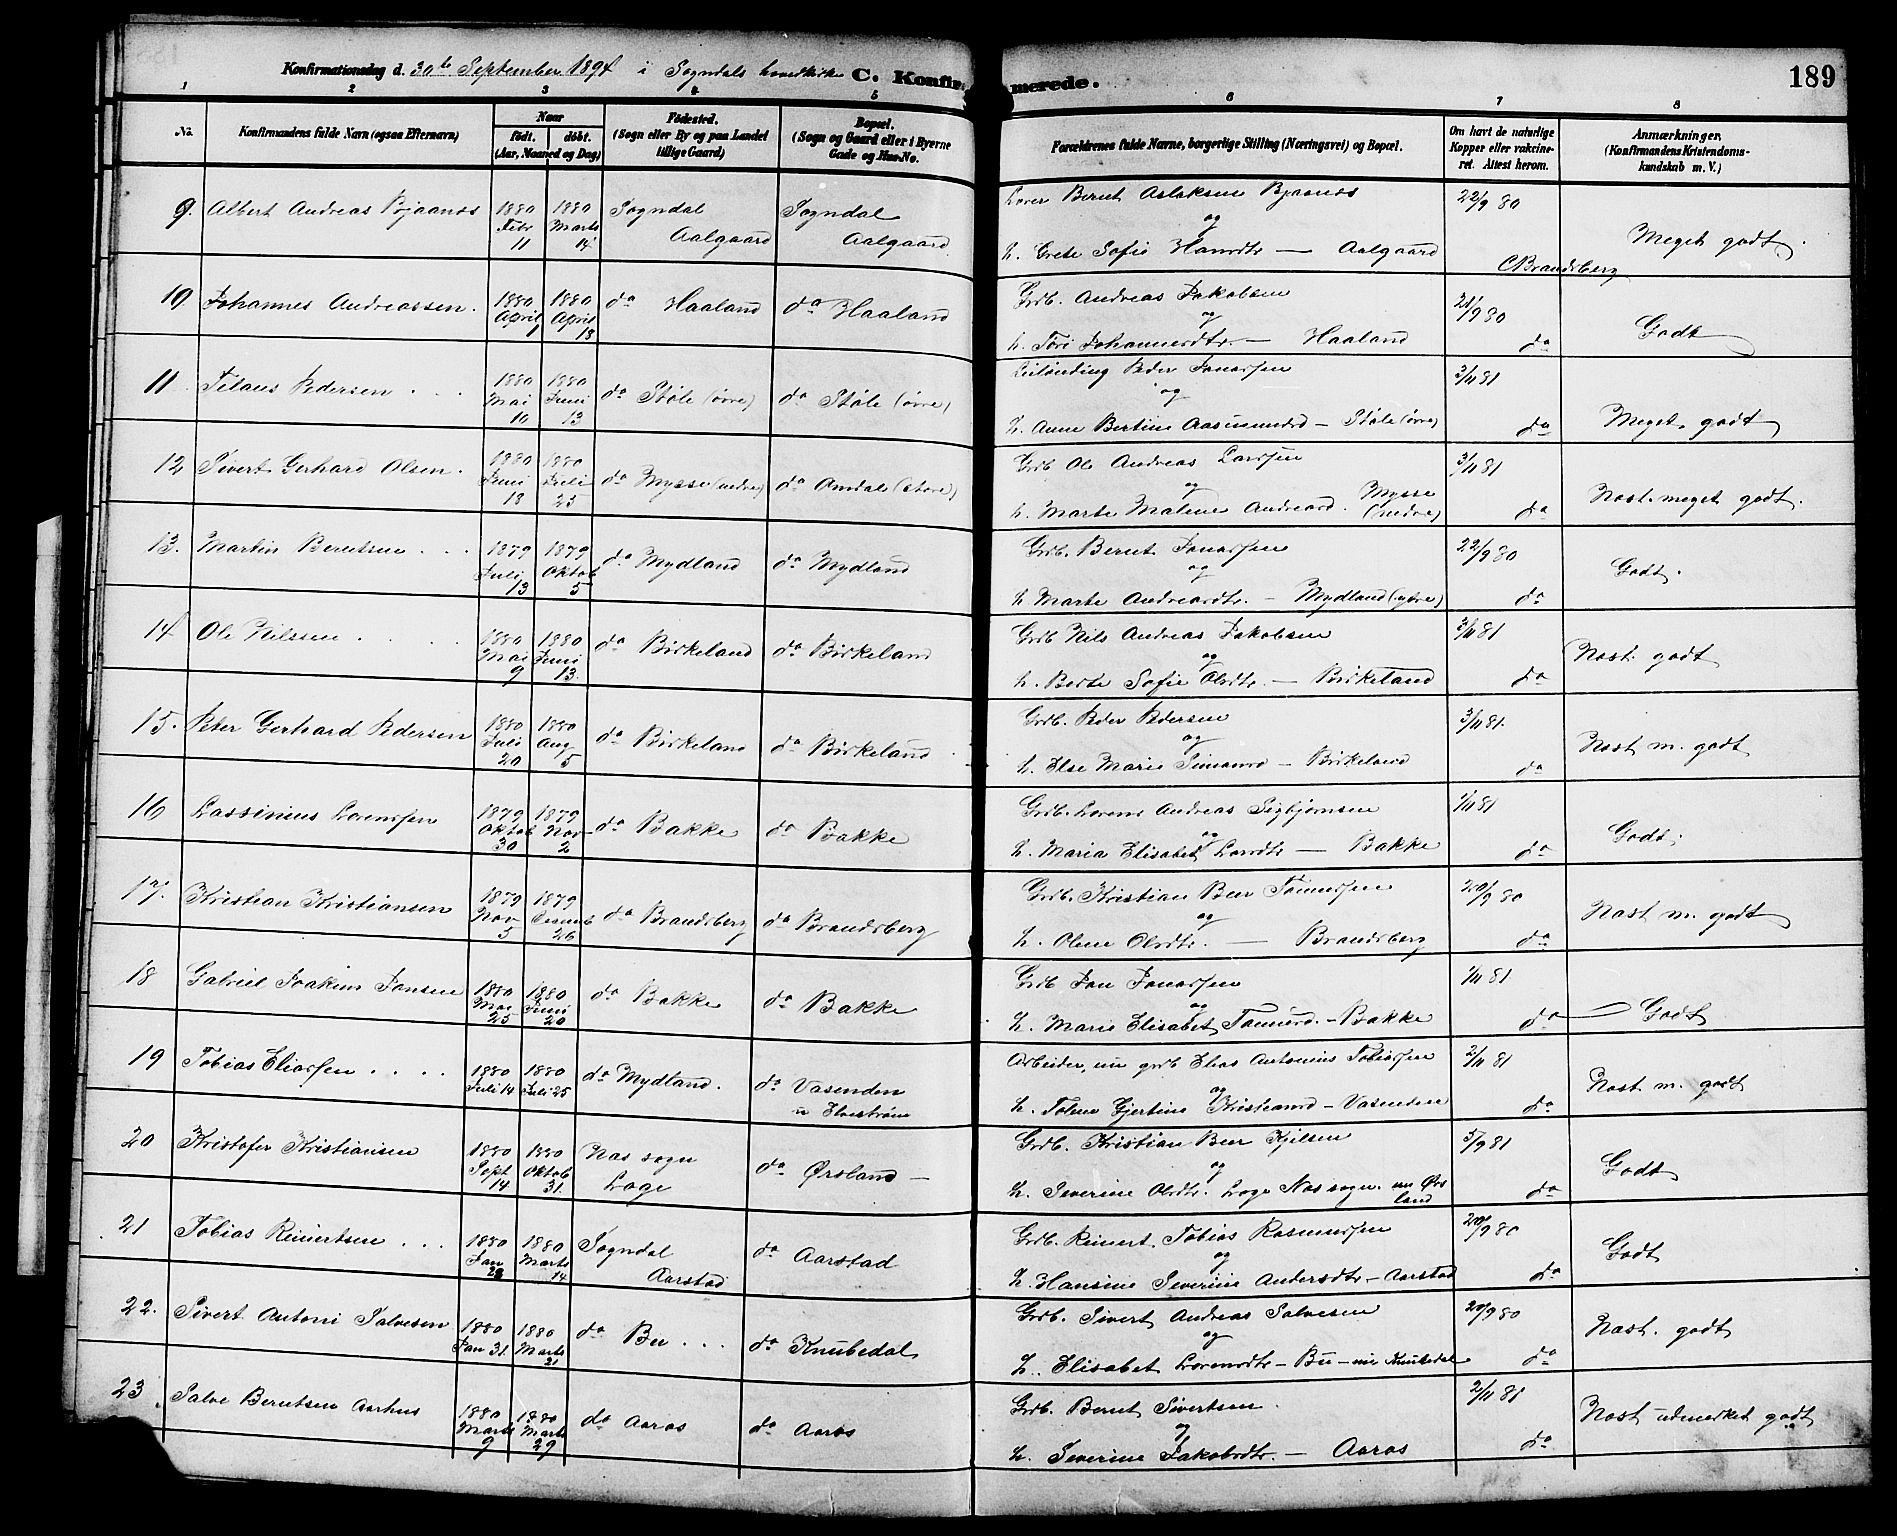 Konfirmationsdag d. 30te September 1894 i Sogndals hovedkirke C. Konfirmerede. 189
1 2 3 4 5 6 7 8
No. Konfirmandens fulde Navn (ogsaa Efternavn) Naar födt. döbt. (Aar, Maaned og Dag) Födested. (Sogn eller By og paa Landet tillige Gaard) Bopæl. (Sogn og Gaard eller i Byerne Gade og Hus-No. Forældrenes fulde Navne, borgerlige Stilling (Næringsvei) og Bopæl. Om havt de naturlige Kopper eller vakcineret. Attest herom. Anmærkninger. (Konfirmandens Kristendomskundskab m. V.)
9. Albert Andreas Bjaanes 1880 Febr 11 1880 Marts 14 Sogndal Aalgaard Sogndal Aalgaard Bernt Aslaksen Bjaanes 22/9 80
og
h. Grete Sofie Hansdtr — Aalgaard CBrandsberg Meget godt.
10 Johannes Andreassen. 1880 April 1 1880 April 18 do Haaland do Haaland Grdb. Andreas Jakobsen 21/9 80
og
h. Tori Johannesdtr. — Haaland do Godt
11. Tilaus Pedersen . . . 1880 Mai 10 1880 Juni 13 do Støle (øvre) do Støle (øvre) Leilending Peder Jonassen 3/11 81
og
h. Anne Bertine Aasmundsd — Støle (øvre) do Meget godt
12 Sivert Gerhard Olsen. 1880 Juni 13 1880 Juli 25 do Mysse (nedre) do Amdal (store) Grdb Ole Andreas Larssen 3/11 81
og
h. Marte Malene Andreasd. Mysse (nedre) do Nost. meget godt.
13. Martin Berntsen . . . 1879 Juli 13 1879 Oktob 5 do Mydland do Mydland Grdb. Bernt Jonassen 22/9 80
og
h Marte Andreasdtr. — Mydland (ytre) do Godt.
14 Ole Nilssen . . . . 1880 Mai 9 1880 Juni 13. do Birkeland do Birkeland Grdb Nils Andreas Jakobsen 3/11 81
og
h. Berte Sofie Olsdtr. — Birkeland do Nost. godt
15. Peter Gerhard Pedersen 1880 Juli 20 1880 Aug 5 do Birkeland do Birkeland Grdb. Peder Pedersen 3/11 81.
og
h. Else Marie Simonsd — Birkeland do Nost m. godt
16 Lassinius Lorenssen 1879 Oktob 30 1879 Nov 2 do Bakke do Bakke Grdb. Lorens Andreas Sigbjørnsen 1/11 81
og
h. Maria Elisabet Larsdtr — Bakke do Godt.
17. Kristian Kristiansen 1879 Nov 5 1879 Desemb 26 do Brandsberg do Brandsberg Grdb. Kristian Beer Tønnessen 20/9 80
og
h. Olene Olsdtr. — Brandsberg do Nost m. godt
18 Gabriel Joakim Jansen 1880 Mai 25 1880 Juni 20 do Bakke do Bakke Grdb Jan Jonassen 1/11 81
og
h. Marie Elisabet Tønnesd. — Bakke do — Godt
19 Tobias Eliassen . . . . 1880 Juli 14 1880 Juli 25 do Mydland. do Vasenden Arbeider, nu grdb Elias Antonius Tobiassen 2/11 81
og
h. Tolene Gjertine Kristiansd — Vasenden do Nost m. godt
20 Kristofer Kristiansen 1880 Sept 14 1880 Oktob 31. Nas sogn Loge do Ørsland — Grdb. Kristian Beer Kjelsen 5/9 81
og
h. Severine Olsdtr. Loge Nas sogn. nu Ørsland do Godt
21 Tobias Reinertsen . . . 1880 Jan 28 1880 Marts 14 Sogndal Aarstad do Aarstad Grdb. Reinert Tobias Rasmussen 20/9 80
og
h. Hansine Severine Andersdtr — Aarstad do Godt
22. Sivert Antoni Salvesen 1880 Jan 31. 1880 Marts 21 do Bu . . . do Knubedal Grdb. Sivert Andreas Salvesen 20/9 80
og
h. Elisabet Lorensdtr — Bu — nu Knubedal do Nost. godt
23 Salve Berntsen Aarhus 1880 Marts 9 1880 Marts 29 do Aaros do Aaros Grdb. Bernt Sivertsen. 2/11 81
og
h. Severine Jakobsdtr. — Aaros do Nost udmerket godt